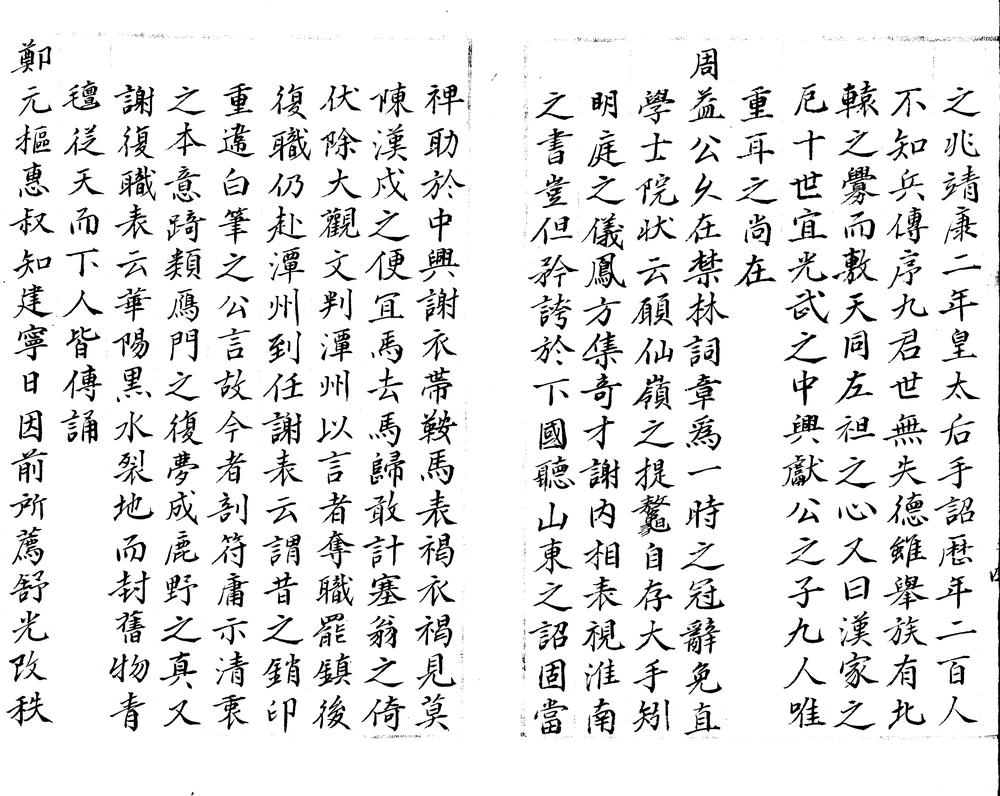 之兆靖康二年皇太后手詔歷年二百人
不知兵傳序九君世無失德雖舉族有北
轅之釁而敷天同左袒之心又曰漢家之
厄十世宜光武之中興獻公之子九人唯
重耳之尚在
周益公久在禁林詞章爲一時之冠辭免直
學士院狀云願仙嶺之提鼇自存大手矧
明庭之儀鳳方集奇才謝內相表視淮南
之書豈但矜誇於下國聽山東之詔固當
裨助於中興謝衣帶鞍馬表褐衣褐見莫
陳漢戍之便宜馬去馬歸敢計塞翁之倚
伏除大觀文判潭州以言者奪職罷鎮後
復職仍赴潭州到任謝表云謂昔之銷印
重違白筆之公言故今者剖符庸示清衷
之本意踦類鴈門之復夢成鹿野之真又
謝復職表云華陽黑水裂地而封舊物青
氊從天而下人皆傳誦
鄭元樞惠叔知建寧日因前所薦舒光改秩